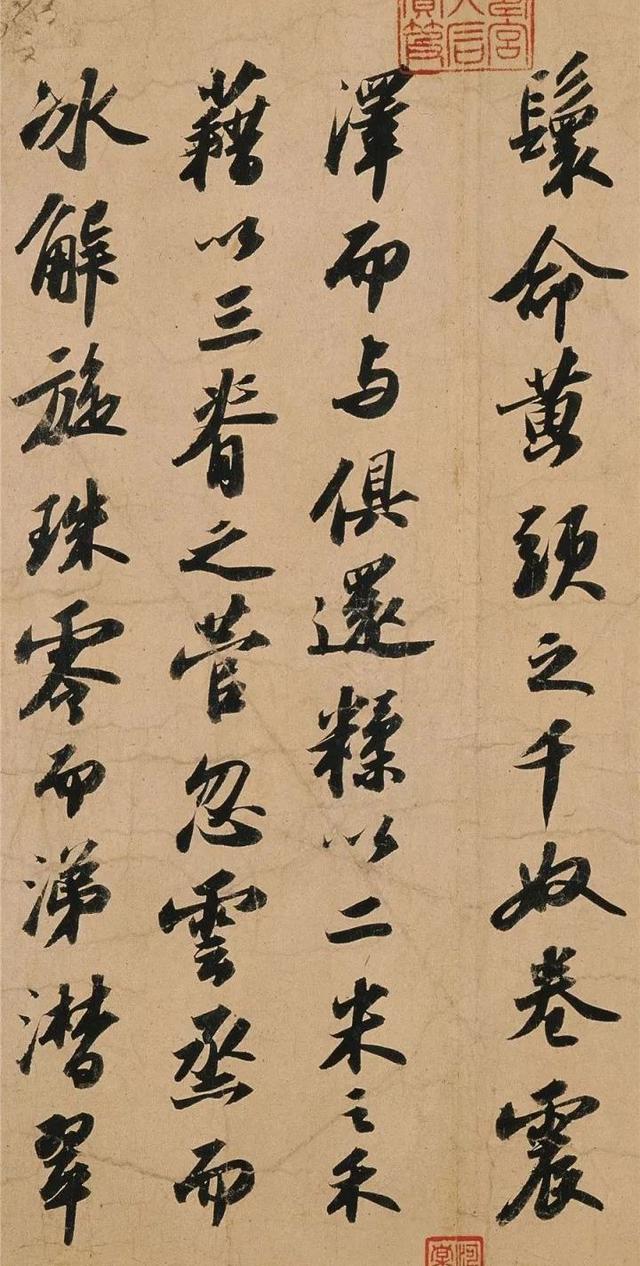 鬟命黄頭之千奴卷震
澤而与俱還糅以二米之禾
藉以三脊之菅忽雲烝而
冰解旋珠零而涕潸翠